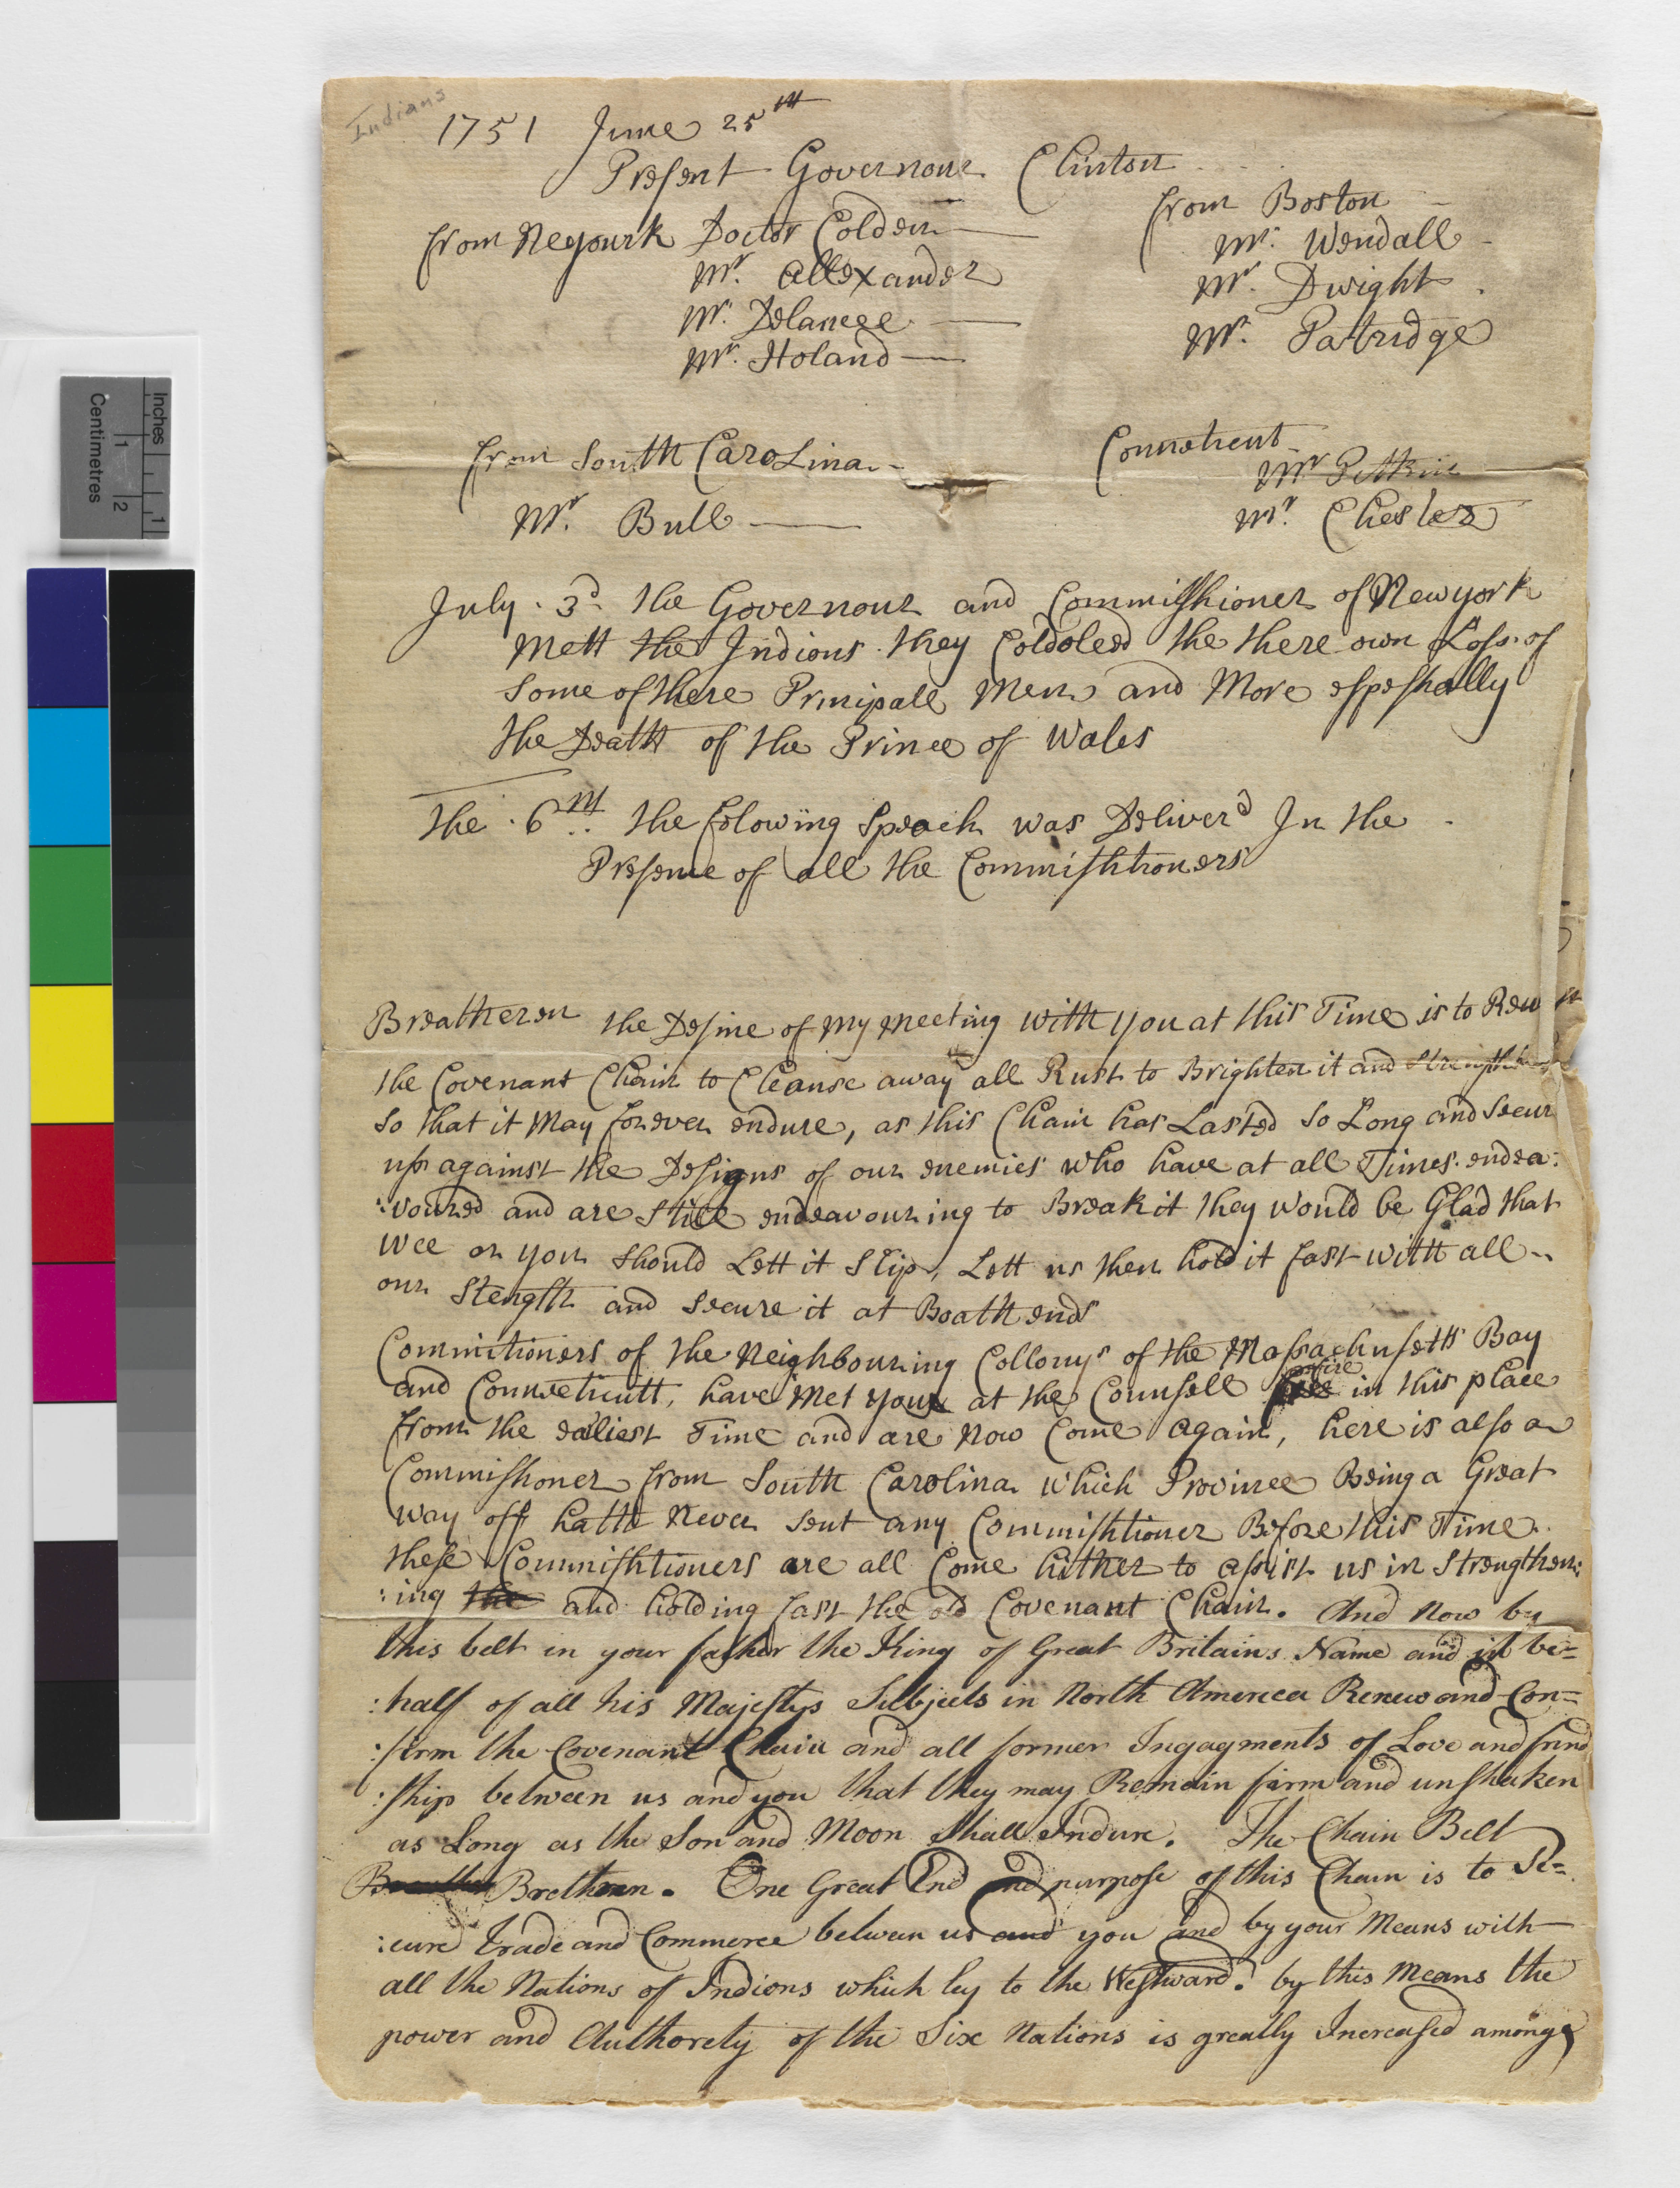 Indians
1751 June 25th
Present Governour Clinton
from Neyourk Doctor Colden
Mr. Allexander
Mr. Delancee
Mr. Holand
from Boston
Mr. Wendall
Mr. Dwight
Mr. Patridge
from South Carolina
Mr. Bull
Conneticut
Mr Pitkin
Mr. Chester
July 3d the Governour and Commisshioner of Newyork
Mett the Indions they Coldoled the there own Loss of
Some of there Prinipall Men and More espeshally
the Death of the Prince of Wales
the 6th the folowing Speach was Deliverd In the
Presence of all the Commishtioners
Breatheren the Desine of My Meeting with you at this Time is to Rew
the Covenant Chain to Cleanse away all Rust to Brighten it and Strengthen
So that it May forever endure, as this Chain has Lasted So Long and Secur
us against the Designs of our enemies who have at all Times endea:
:voured and are Still endeavouring to Break it they would be Glad that
Wee or you Should Lett it Slip, Lett us then hold it fast with all
our Stength and Secure it at Boath ends
Commitioners of the Neighbouring Collonys of the Massachusetts Bay
and Conneticutt, have Met you at the Counsell fire in this place
from the earliest Time and are Now Come again, here is also a
Commishoner from South Carolina which Province Being a Great
way off hath Never Sent any Commishtioner Before this Time
these Commishtioners are all Come hither to assist us in Strengthen:
:ing the and holding fast the old Covenant Chain. And Now by
this belt in your father the King of Great Britains Name and in be=
:half of all his Majestys Subjects in North America Renew and Con=
:firm the Covenant Chain and all former Ingagments of Love and frind
:ship between us and you that they may Remain firm and unshaken
as Long as the Son and Moon shall Indure. The Chain Belt
Brethren. One Great End and purpose of this Chain is to Se=
:cure Trade and Commerce between us and you and by your Means with
all the Nations of Indions which ley to the Westward. by this Means the
power and Authorety of the Six Nations is greatly Increased among